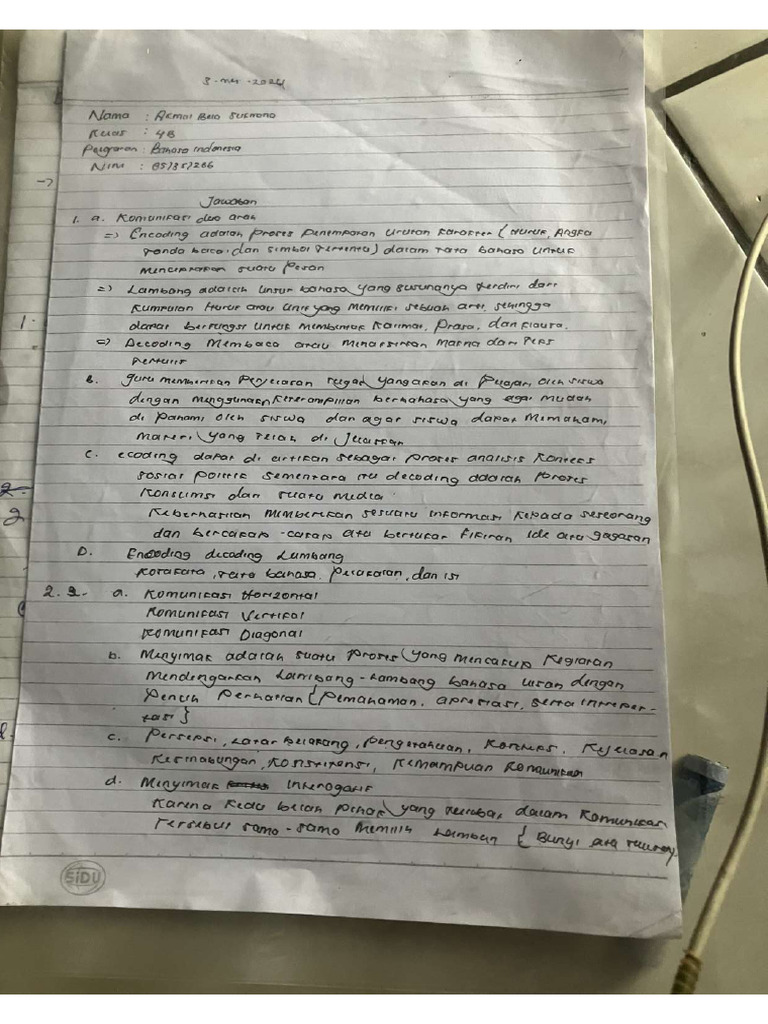 3 - mei - 2024
Nama : Akmal Bela Sukmono
Kelas : 4B
Pelajaran : Bahasa Indonesia
Nim : 857357266
Jawaban
1. a. Komunikasi dua arah
=> Encoding adalah proses penempatan urutan karakter (huruf, Angka
tanda baca, dan simbol tertentu) dalam tata bahasa untuk
menciptakan suatu pesan
=> Lambang adalah unsur bahasa yang susunanya terdiri dari
kumpulan huruf atau unit yang memiliki sebuah arti, sehingga
dapat berfungsi untuk membentuk kalimat, prasa, dan klausa.
=> Decoding Membaca atau menafsirkan makna dari teks
tertulis
B. guru memberikan penjelasan tugas yang akan di pelajari oleh siswa
dengan menggunakan keterampilan berbahasa yang agar mudah
di pahami oleh siswa dan agar siswa dapat memahami
materi yang telah di jelaskan
C. ecoding dapat di artikan sebagai proses analisis konteks
sosial politik sementara itu decoding adalah proses
konsumsi dari suatu media.
Keberhasilan memberikan sesuatu informasi kepada seseorang
dan bercakap-cakap atau bertukar fikiran ide atau gagasan
D. Encoding decoding Lambang
kosakata, tata bahasa, pelafalan, dan isi
2. 2. a. Komunikasi Horizontal
Komunikasi Vertikal
Komunikasi Diagonal
b. Menyimak adalah suatu proses yang mencakup kegiatan
mendengarkan lambang-lambang bahasa lisan dengan
penuh perhatian { pemahaman, apresiasi, serta interper-
tasi }
c. Persepsi, latar belakang, pengetahuan, konteks, kejelasan
kesinabungan, konsistensi, kemampuan komunikan
d. Menyimak interogatif
karena kedu belah pihak yang terlibat dalam komunikasi
tersebut sama-sama memilih lamban { Bunyi ata
SiDU